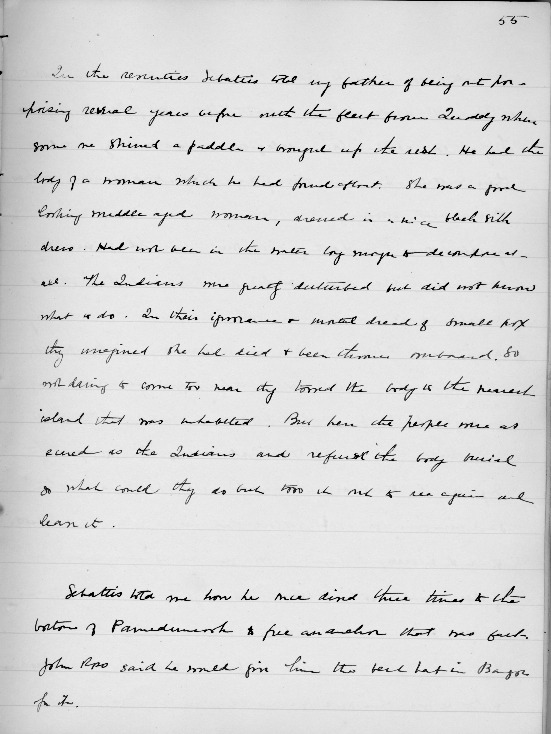 55
In the seventies Sebattis told my father of being out por-
poising several years before with the fleet from Quoddy when
some one shined a paddle & brought up the rest. He had the
body of a woman which he had found afloat. She was a good
looking middle aged woman, dressed in a nice black silk
dress. Had not been in the water long enough to decompose at
all. The Indians were greatly disturbed but did not know
what to do. In their ignorance & mortal dread of small pox
they imagined she had died & been thrown overboard. So
not daring to come too near they towed the body to the nearest
island that was inhabited. But here the people were as
scared as the Indians and refused the body burial
so what could they do but tow it out to sea again and
leave it.
Sebattis told me how he once dived three times to the
bottom of Pamedumcook to free an anchor that was fast.
John Ross said he would give him the best hat in Bangor
for it.